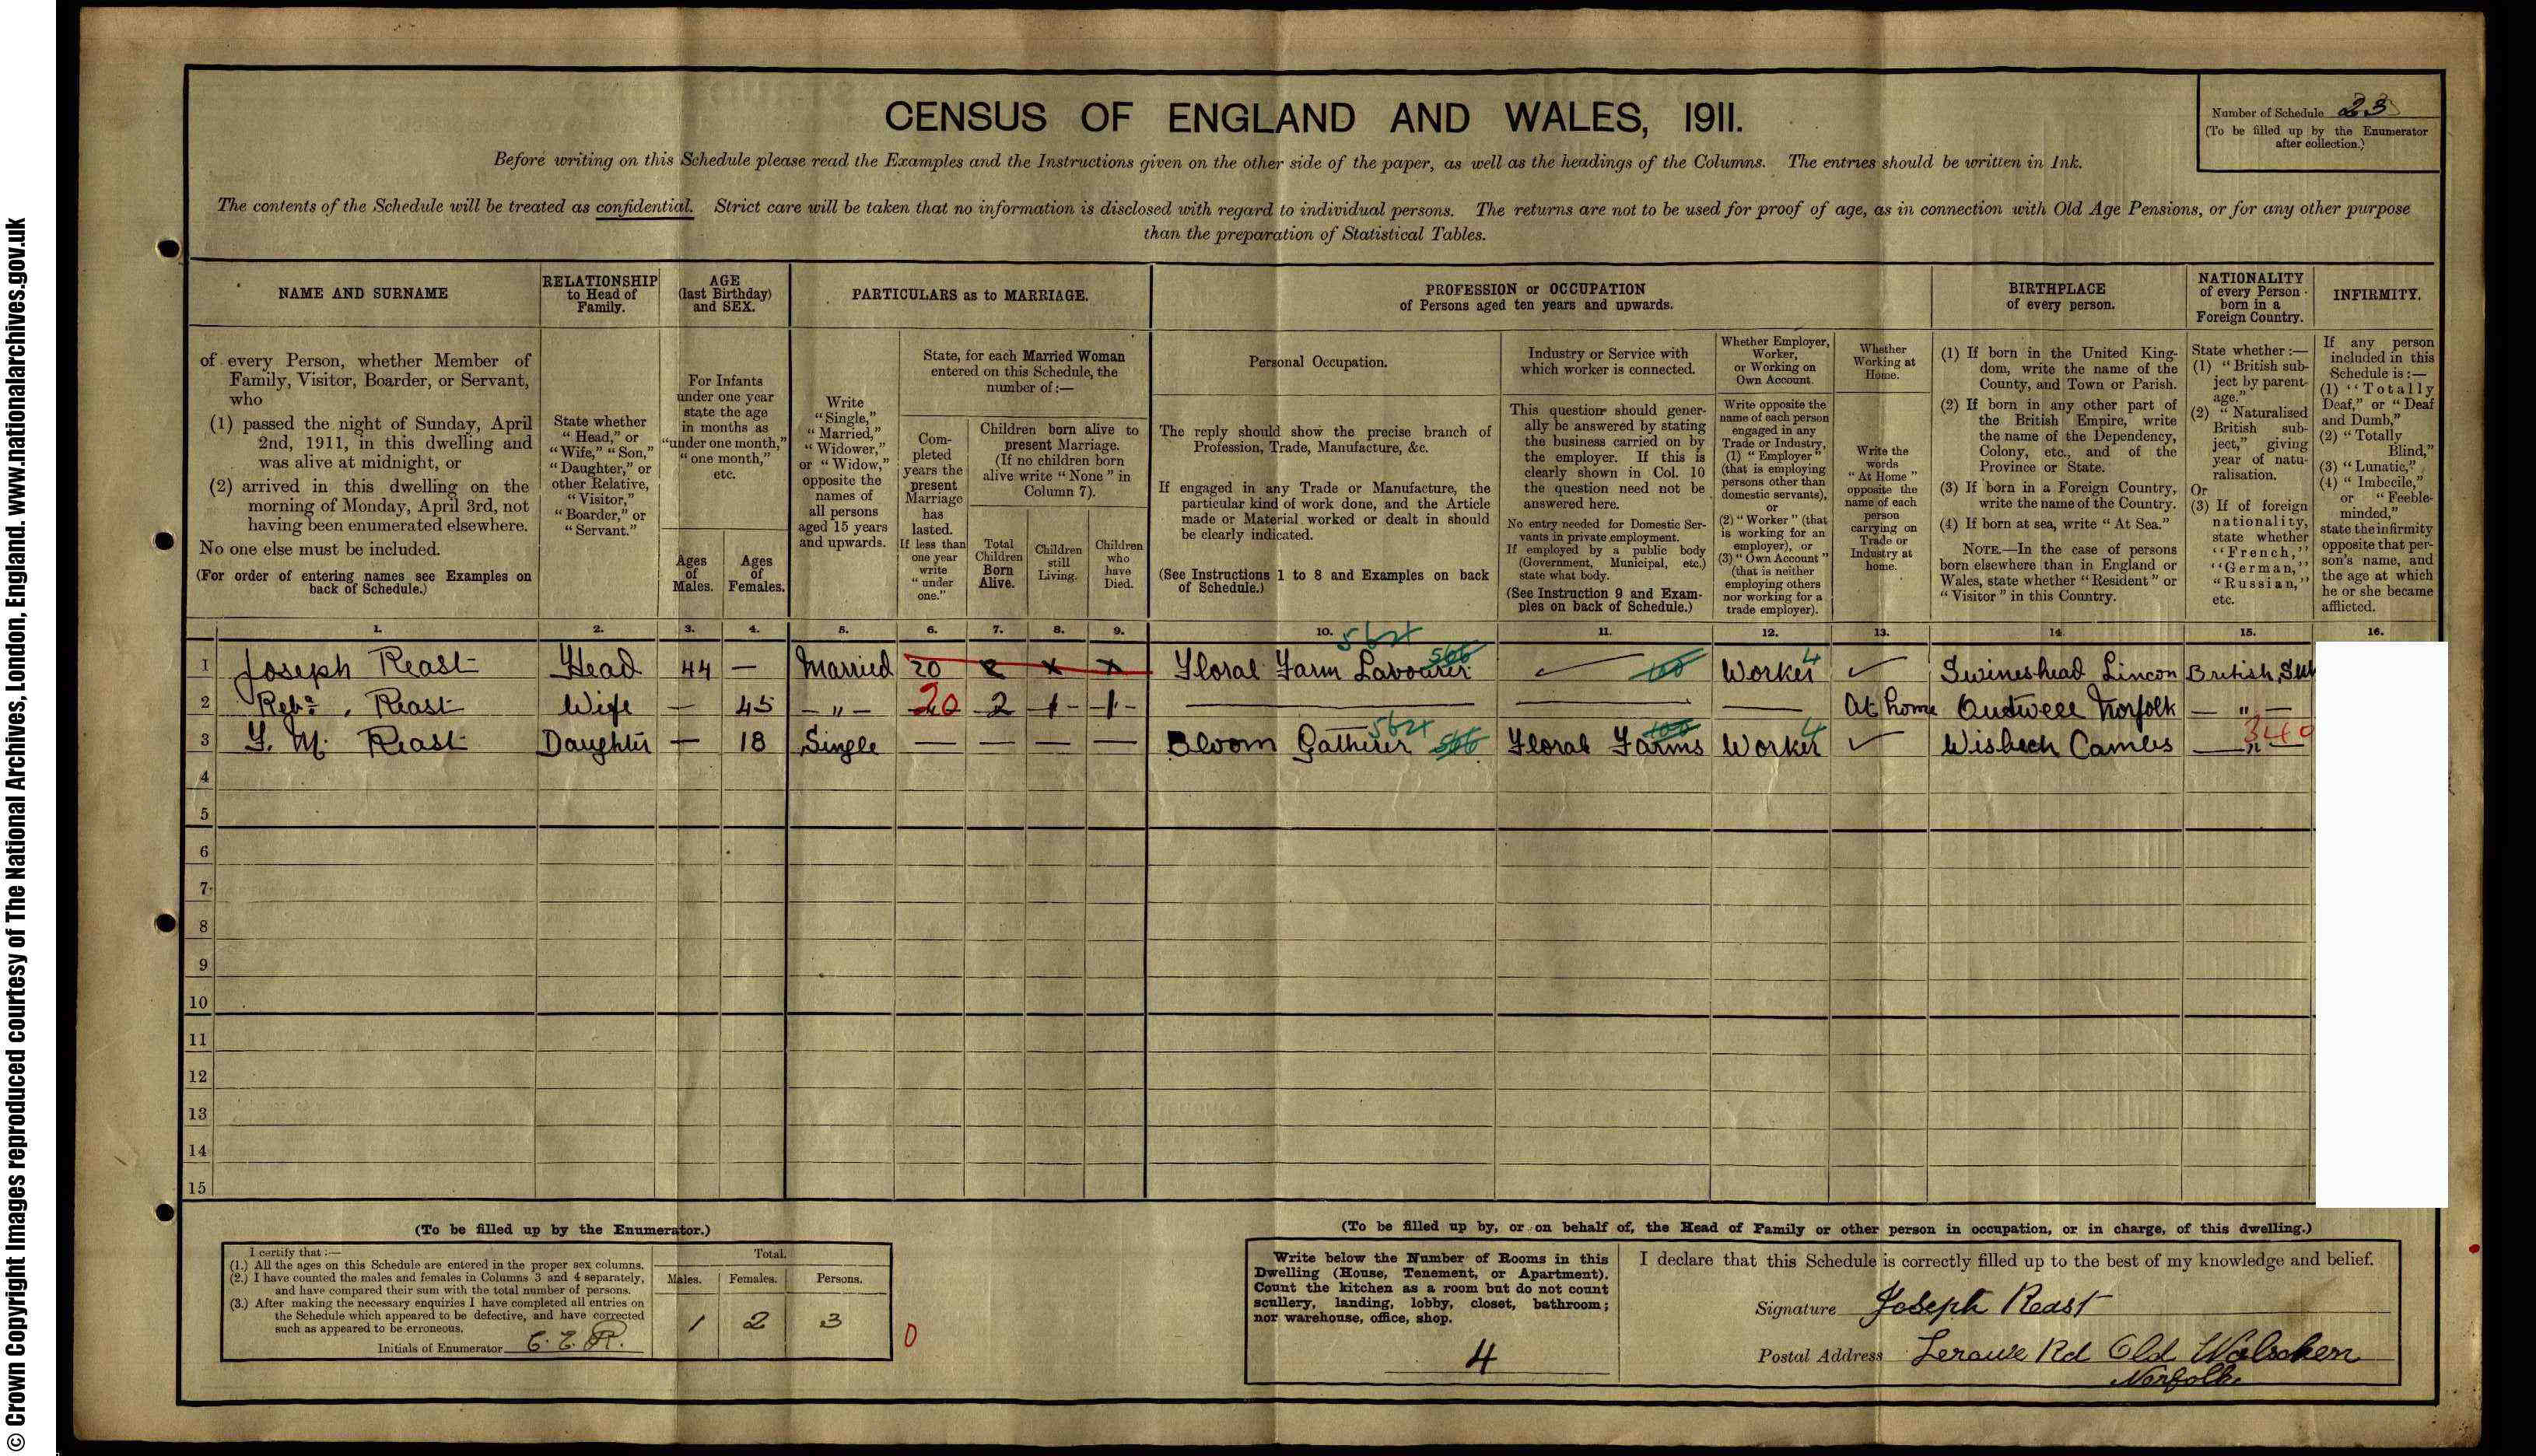 © Crown Copyright Images reproduced courtesy of The National Archives, London, England. www.nationalarchives.gov.uk
CENSUS OF ENGLAND AND WALES, 1911.
Number of Schedule 23
(To be filled up by the Enumerator after collection.)
Before writing on this Schedule please read the Examples and the Instructions given on the other side of the paper, as well as the headings of the Columns. The entries should be written in Ink.
The contents of the Schedule will be treated as confidential. Strict care will be taken that no information is disclosed with regard to individual persons. The returns are not to be used for proof of age, as in connection with Old Age Pensions, or for any other purpose
than the preparation of Statistical Tables.
NAME AND SURNAME
RELATIONSHIP
to Head of
Family.
AGE
(last Birthday)
and SEX.
PARTICULARS as to MARRIAGE.
PROFESSION or OCCUPATION
of Persons aged ten years and upwards.
BIRTHPLACE
of every person.
NATIONALITY
of every Person
born in a
Foreign Country.
INFIRMITY.
of every Person, whether Member of
Family, Visitor, Boarder, or Servant,
who
(1) passed the night of Sunday, April
2nd, 1911, in this dwelling and
was alive at midnight, or
(2) arrived in this dwelling on the
morning of Monday, April 3rd, not
having been enumerated elsewhere.
No one else must be included.
(For order of entering names see Examples on
back of Schedule.)
State whether
"Head," or
"Wife," "Son,"
"Daughter," or
other Relative,
"Visitor,"
"Boarder," or
"Servant."
For Infants
under one year
state the age
in months as
"under one month,"
"one month,"
etc.
Ages
of
Males.
Ages
of
Females.
Write
"Single,"
"Married,"
"Widower,"
or "Widow,"
opposite the
names of
all persons
aged 15 years
and upwards.
State, for each Married Woman
entered on this Schedule, the
number of:—
Com-
pleted
years the
present
Marriage
has
lasted.
If less than
one year
write
"under
one."
Children born alive to
present Marriage.
(If no children born
alive write "None" in
Column 7).
Total
Children
Born
Alive.
Children
still
Living.
Children
who
have
Died.
Personal Occupation.
The reply should show the precise branch of
Profession, Trade, Manufacture, &c.
If engaged in any Trade or Manufacture, the
particular kind of work done, and the Article
made or Material worked or dealt in should
be clearly indicated.
(See Instructions 1 to 8 and Examples on back
of Schedule.)
Industry or Service with
which worker is connected.
This question should gener-
ally be answered by stating
the business carried on by
the employer. If this is
clearly shown in Col. 10
the question need not be
answered here.
No entry needed for Domestic Ser-
vants in private employment.
If employed by a public body
(Government, Municipal, etc.)
state what body.
(See Instruction 9 and Exam-
ples on back of Schedule.)
Whether Employer,
Worker,
or Working on
Own Account.
Write opposite the
name of each person
engaged in any
Trade or Industry,
(1) "Employer"
(that is employing
persons other than
domestic servants),
or
(2) "Worker" (that
is working for an
employer), or
(3) "Own Account"
(that is neither
employing others
nor working for a
trade employer).
Whether
Working at
Home.
Write the
words
"At Home"
opposite the
name of each
person
carrying on
Trade or
Industry at
home.
(1) If born in the United King-
dom, write the name of the
County, and Town or Parish.
(2) If born in any other part of
the British Empire, write
the name of the Dependency,
Colony, etc., and of the
Province or State.
(3) If born in a Foreign Country,
write the name of the Country.
(4) If born at sea, write "At Sea."
NOTE.—In the case of persons
born elsewhere than in England or
Wales, state whether "Resident" or
"Visitor" in this Country.
State whether:—
(1) "British sub-
ject by parent-
age."
(2) "Naturalised
British sub-
ject," giving
year of natu-
ralisation.
Or
(3) If of foreign
nationality,
state whether
"French,"
"German,"
"Russian,"
etc.
If any person
included in this
Schedule is:—
(1) "Totally
Deaf," or "Deaf
and Dumb,"
(2) "Totally
Blind,"
(3) "Lunatic,"
(4) "Imbecile,"
or "Feeble-
minded,"
state the infirmity
opposite that per-
son's name, and
the age at which
he or she became
afflicted.
1. 2. 3. 4. 5. 6. 7. 8. 9. 10. 11. 12. 13. 14. 15. 16.
562
1 Joseph Reast Head 44 — Married 20 2 x x Floral Farm Lavourer 566 100 Worker 4 Swineshead Lincon British Sub
2 Reba. Reast Wife — 45 — " — 20 2 1 1 At home Outwell Norfolk — " —
3 G. M. Reast Daughter — 18 Single — — — — Bloom Gatherer 562 566 Floral Farms 100 Worker 4 Wisbech Cambs — " — 340
4
5
6
7
8
9
10
11
12
13
14
15
(To be filled up by the Enumerator.)
I certify that:—
(1.) All the ages on this Schedule are entered in the proper sex columns.
(2.) I have counted the males and females in Columns 3 and 4 separately,
and have compared their sum with the total number of persons.
(3.) After making the necessary enquiries I have completed all entries on
the Schedule which appeared to be defective, and have corrected
such as appeared to be erroneous.
Initials of Enumerator C. E. R.
Total.
Males. Females. Persons.
1 2 3
0
(To be filled up by, or on behalf of, the Head of Family or other person in occupation, or in charge, of this dwelling.)
Write below the Number of Rooms in this
Dwelling (House, Tenement, or Apartment).
Count the kitchen as a room but do not count
scullery, landing, lobby, closet, bathroom;
nor warehouse, office, shop.
4
I declare that this Schedule is correctly filled up to the best of my knowledge and belief.
Signature Joseph Reast
Postal Address Rd Old Walsoken
Norfolk